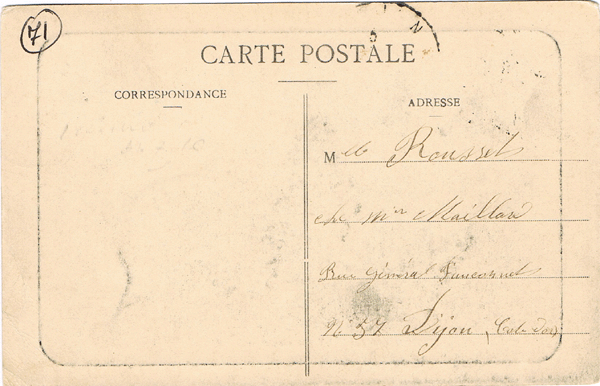 71
CARTE POSTALE
CORRESPONDANCE
ADRESSE
Mlle Rousset
che Mr Maillard
Rue Général Fauconnet
N 57 Dijon, Cote d'or